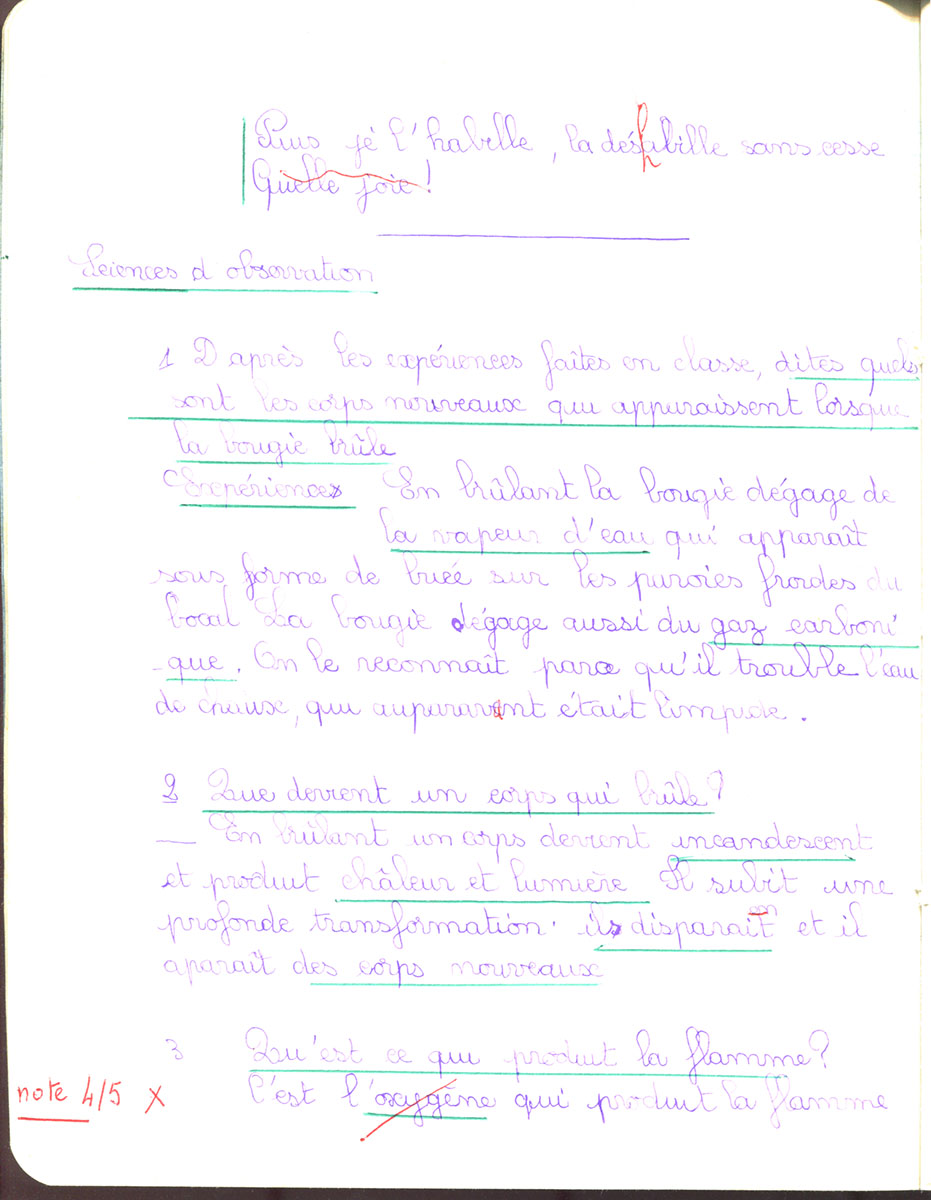 Puis je l'habille, la déshabille sans cesse
Quelle joie !
Sciences d'observation
1 D'après les expériences faîtes en classe, dites quels
sont les corps nouveaux qui apparaissent lorsque
la bougie brûle
Expériences En brûlant la bougie dégage de
la vapeur d'eau qui apparaît
sous forme de buée sur les paroies froides du
bocal La bougie dégage aussi du gaz carboni
-que. On le reconnaît parce qu'il trouble l'eau
de chaux, qui auparavant était limpide.
2 Que devient un corps qui brûle ?
— En brûlant un corps devient incandescent
et produit châleur et lumière Il subit une
profonde transformation. ils disparaît et il
aparaît des corps nouveaux
3 Qu'est ce qui produit la flamme ?
note 4/5 X C'est l'oxygène qui produit la flamme